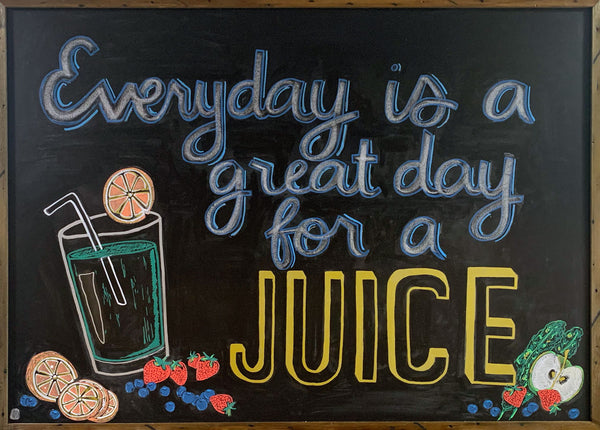 Everyday is a
great day
for a
JUICE